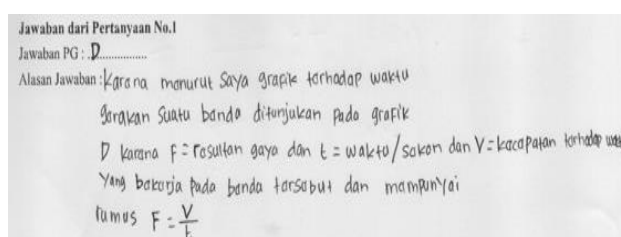 Jawaban dari Pertanyaan No.1
Jawaban PG : D...............
Alasan Jawaban : Karana manurut Saya grapik tarhadap waktu
garakan Suatu banda ditunjukan pada grafik
D karana F = rasultan gaya dan t = waktu/sakon dan V = kacapatan tarhadap
Yang bakarja pada banda tarsabut dan mampunyai
rumus F = V/t